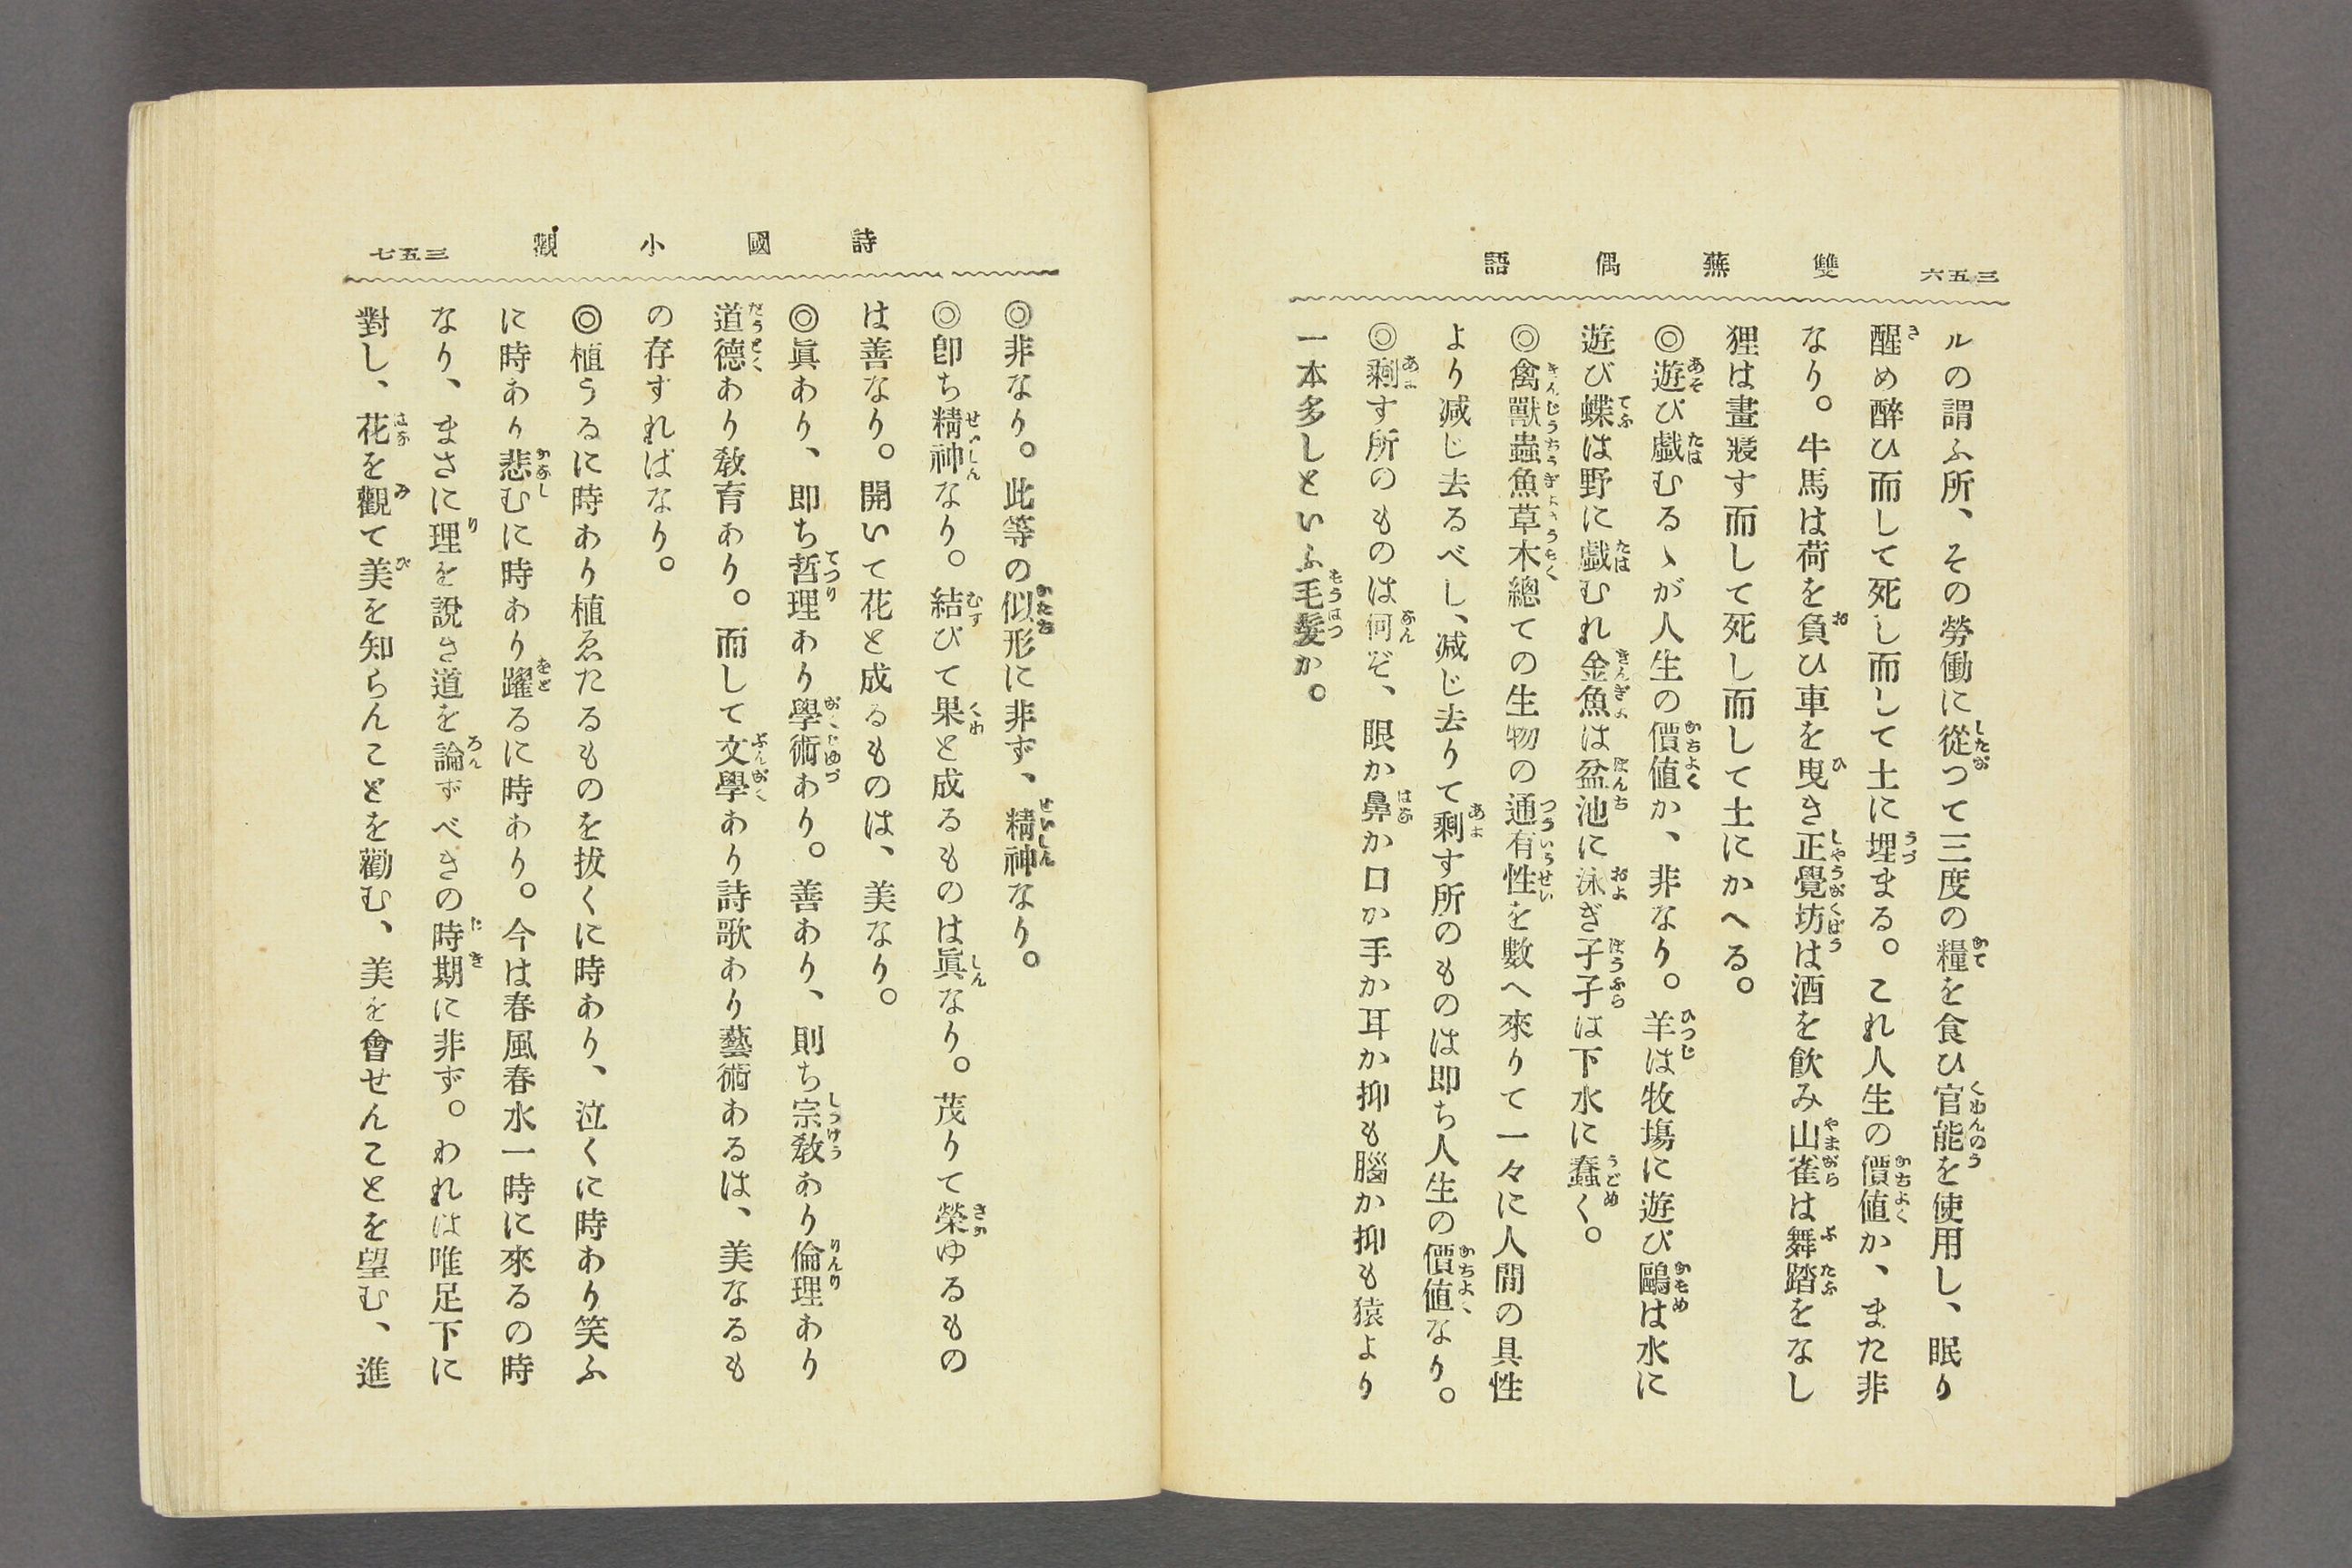 三五六
雙蕪偶語
ルの謂ふ所、その勞働に從つて三度の糧を食ひ官能を使用し、眠り
醒め醉ひ而して死し而して土に埋まる。これ人生の價値か、また非
なり。牛馬は荷を負ひ車を曳き正覺坊は酒を飮み山雀は舞踏をなし
狸は晝寢す而して死し而して土にかへる。
◎遊び戯むるゝが人生の價値か、非なり。羊は牧塲に遊び鷗は水に
遊び蝶は野に戯むれ金魚は盆池に泳ぎ孑孑は下水に蠢く。
◎禽獸蟲魚草木總ての生物の通有性を數へ來りて一々に人間の具性
より减じ去るべし、减じ去りて剩す所のものは即ち人生の價値なり。
◎剩す所のものは何ぞ、眼か鼻か口か手か耳か抑も腦か抑も猿より
一本多しといふ毛髮か。
詩國小觀
三五七
◎非なり。此等の似形に非ず、精神なり。
◎卽ち精神なり。結びて果と成るものは眞なり。茂りて榮ゆるもの
は善なり。開いて花と成るものは、美なり。
◎眞あり、即ち哲理あり學術あり。善あり、則ち宗敎あり倫理あり
道德あり敎育あり。而して文學あり詩歌あり藝術あるは、美なるも
の存すればなり。
◎植うるに時あり植ゑたるものを拔くに時あり、泣くに時あり笑ふ
に時あり悲むに時あり躍るに時あり。今は春風春水一時に來るの時
なり、まさに理を說き道を論ずべきの時期に非ず。われは唯足下に
對し、花を觀て美を知らんことを勸む、美を會せんことを望む、進